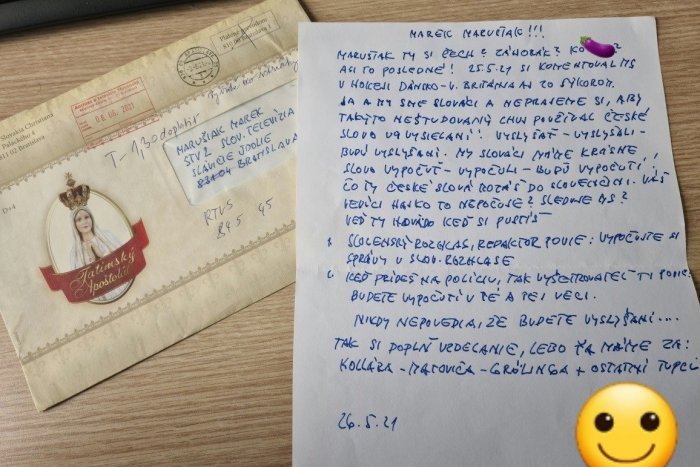 Slovakia Christiana
Palackého 4
811 02 Bratislava
Platené prevodom
810 00 Bratislava
08 06 2021
T- 1,30 doplatit
MARUŠIAK MAREK
STV 2 SLOV. TELEVÍZIA
SLAVIČIE ÚDOLIE
83104 BRATISLAVA
RTVS
845 45
D+4
Fatimský
Apoštolát
MAREK MARUŠIAK!!!
MARUŠIAK TY SI ČECH? ZÁHORÁK? KO ?
ASI TO POSLEDNÉ! 25.5.21 SI KOMENTOVAL MS
V HOKEJI DÁNSKO-V. BRITÁNIA ZO SÝKOROM.
JA A MY SME SLOVÁCI A NEPRAJEME SI, ABY
TAKÝTO NEŠTUDOVANÝ CHUJ POUŽÍVAL ČESKÉ
SLOVO VO VYSIELANÍ! VYSLÝŠAŤ - VYSLÝŠALI-
BUDÚ VYSLÝŠANÍ. MY SLOVÁCI MÁME KRÁSNE
SLOVO VYPOČUŤ - VYPOČULI - BUDÚ VYPOČUTÍ.
ČO TY ČESKÉ SLOVÁ DO SLOVENČINY. VÁŠ
VEDÚCI HANKO TO NEPOČUJE? SLEDUJE VÁS?
VEĎ TY HOVÄDO KEĎ SI PUSTÍŠ
SLOVENSKÝ ROZHLAS, REDAKTOR POVIE: VYPOČUJTE SI
SPRÁVY V SLOV. ROZHLASE
KEĎ PRÍDEŠ NA POLÍCIU, TAK VYŠETROVATEĽ TI POVIE:
BUDETE VYPOČUTÍ V TÉ A TEJ VECI.
NIKDY NEPOVEDIA, ŽE BUDETE VYSLÝŠANÍ...
TAK SI DOPLŇ VZDELANIE, LEBO ŤA MÁME ZA:
KOLLÁRA - MATOVIČA - GRÖLINGA + OSTATNÍ TUPCI
26.5.21